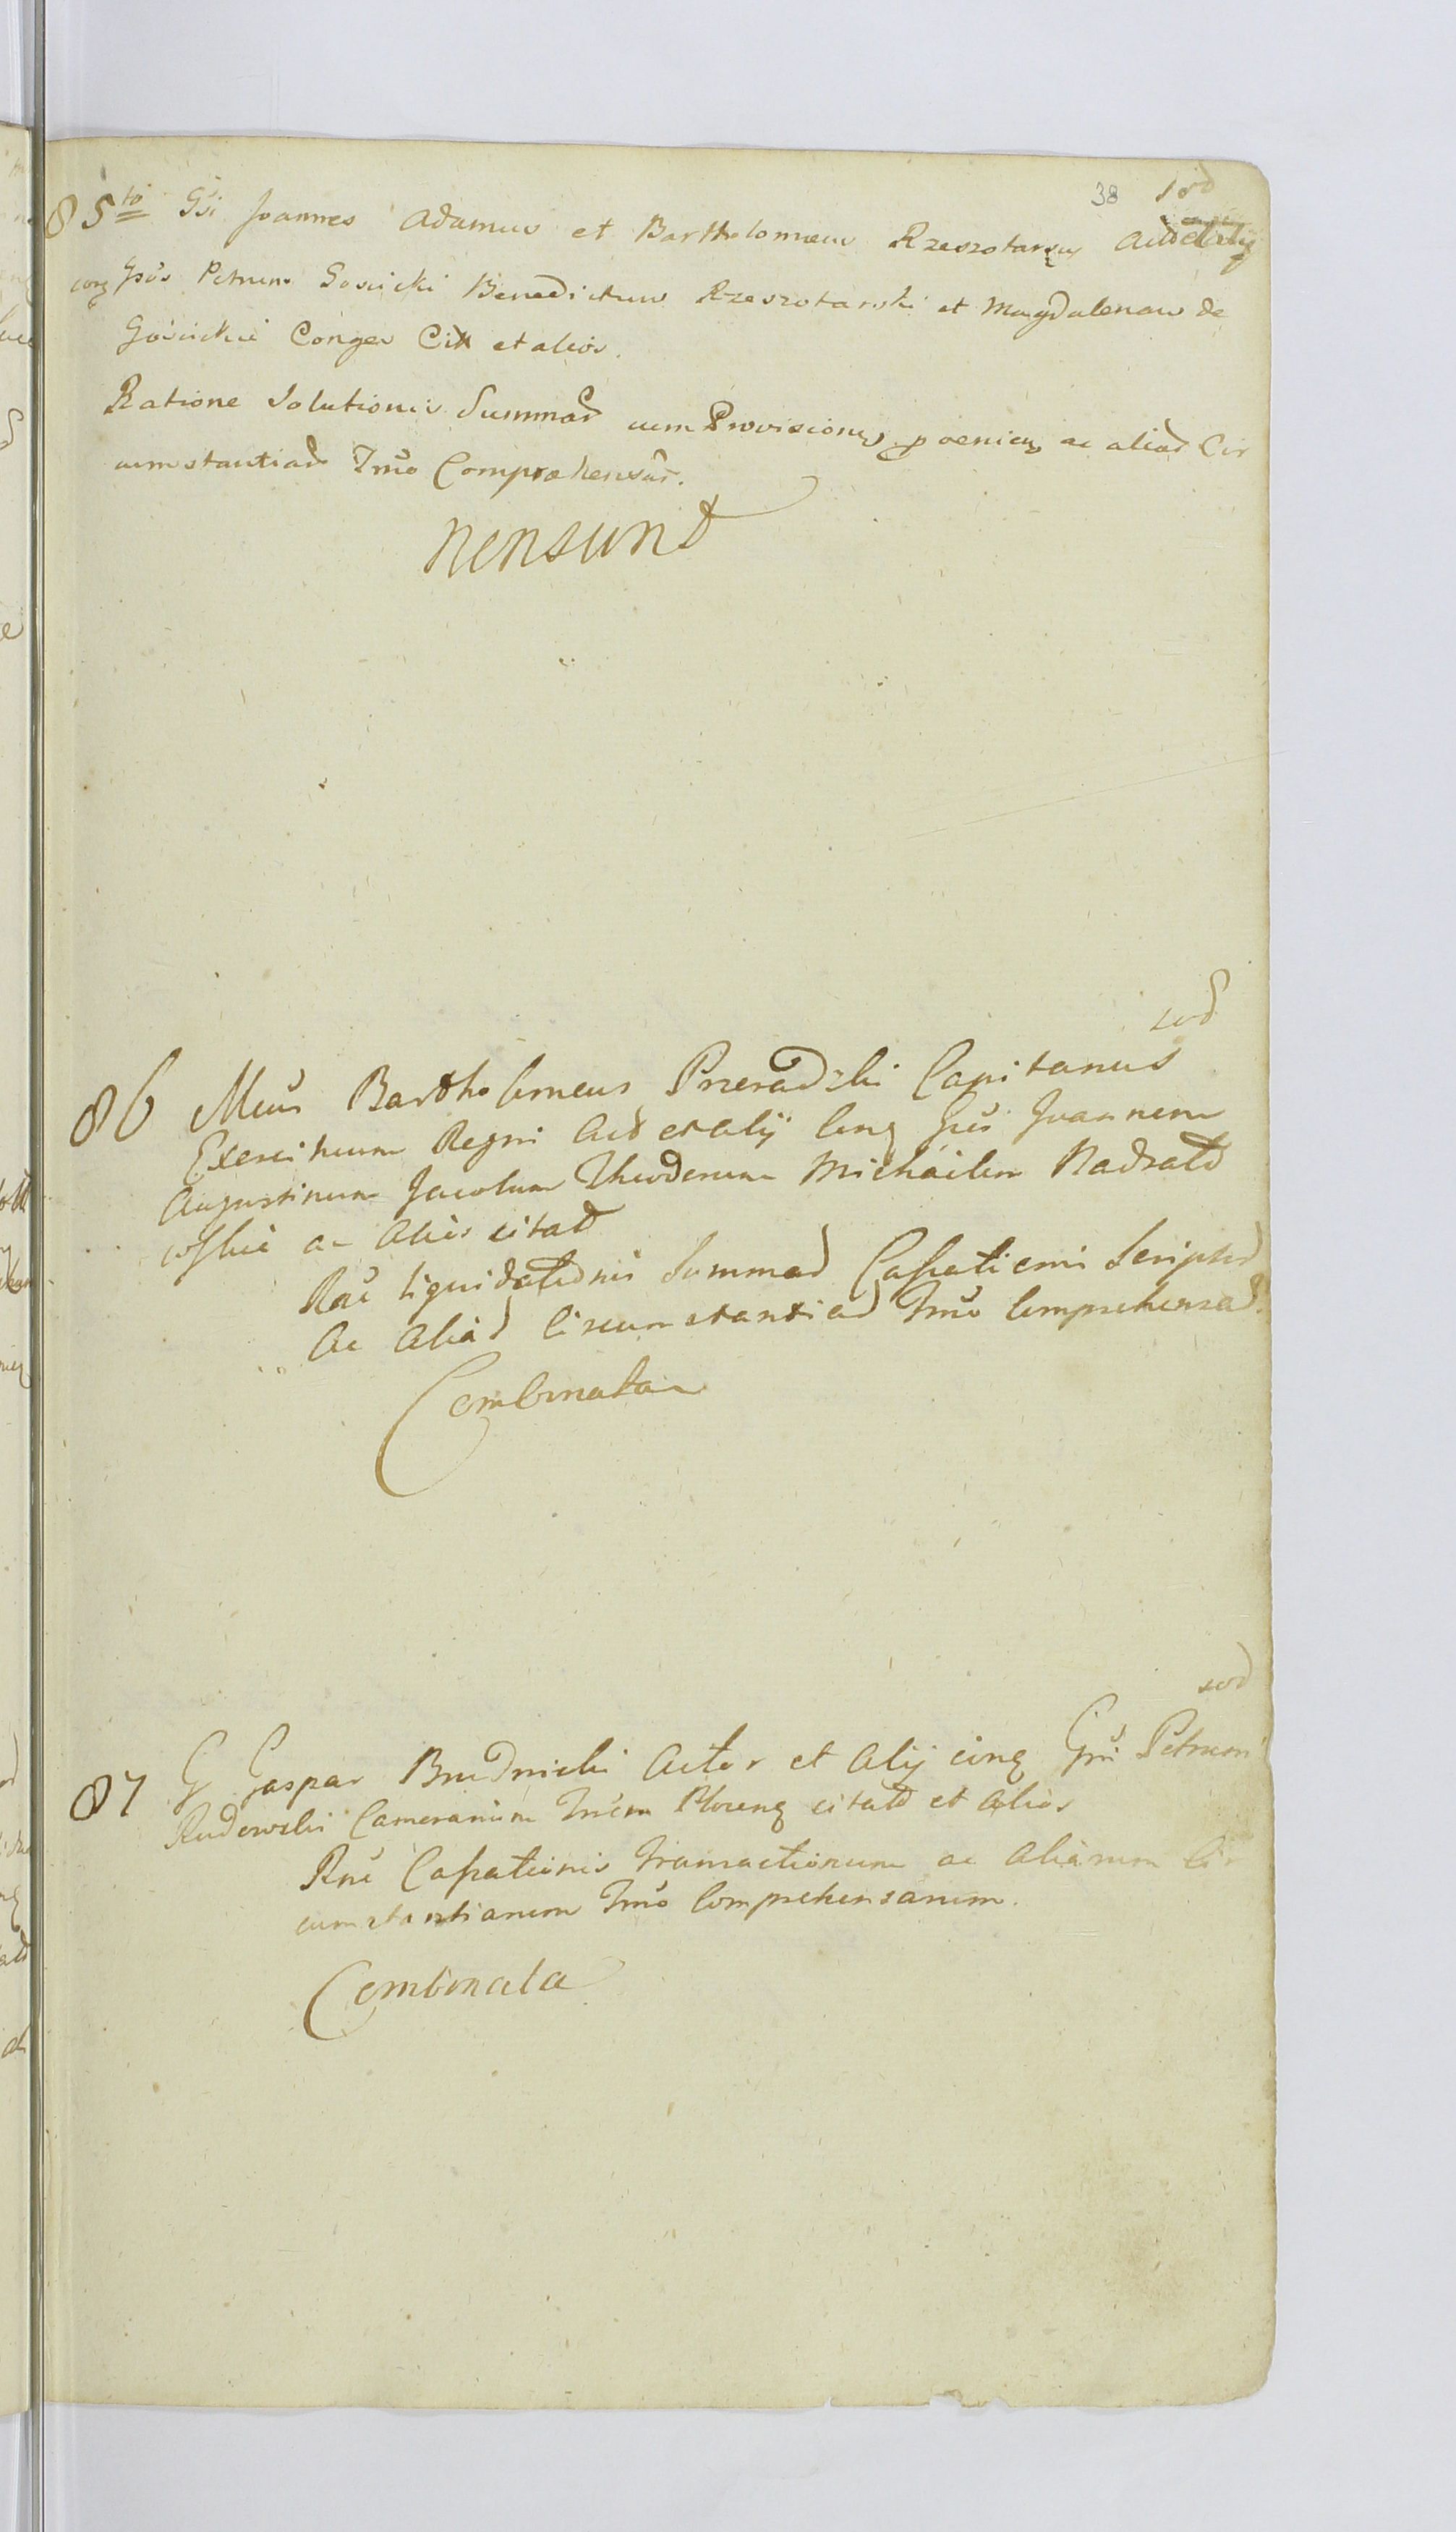 38 sod
85to Gsi Joannes Adamus et Bartholomeus Rzeszotarscy Act et alij
conq Gsos Petrum Gosicki Benedictum Rzeszotarski et Magdalenam de
Gosickie Conges Citt et alios.
Ratione Solutionis Summar cum Provisioneq poenieq ac aliar Cir
cumstantiar Tmo Comprehensar.
non sunt
sod
86 Mcus Bartholomeus Przeradzki Capitanus
Exercituum Regni Act et alij Conq Gsos Joannem
Augustinum Jacobum Theodorum Michaelem Nadrato
wskie ac Alios citat
Rne liquidationis Summar Cassationis Script
Ac Aliar Circumstantiar Tmo Comprehensar.
Combinata
sod
87 G Gaspar Brudnicki Actor et Alij cinq Gsm Petrum
Rudowski Camerarium Trrem Plocens citat et Alios
Rne Cassationis Transactionum ac Aliarum Cir
cumstantiarum Tmo Comprehensarum.
Combinata